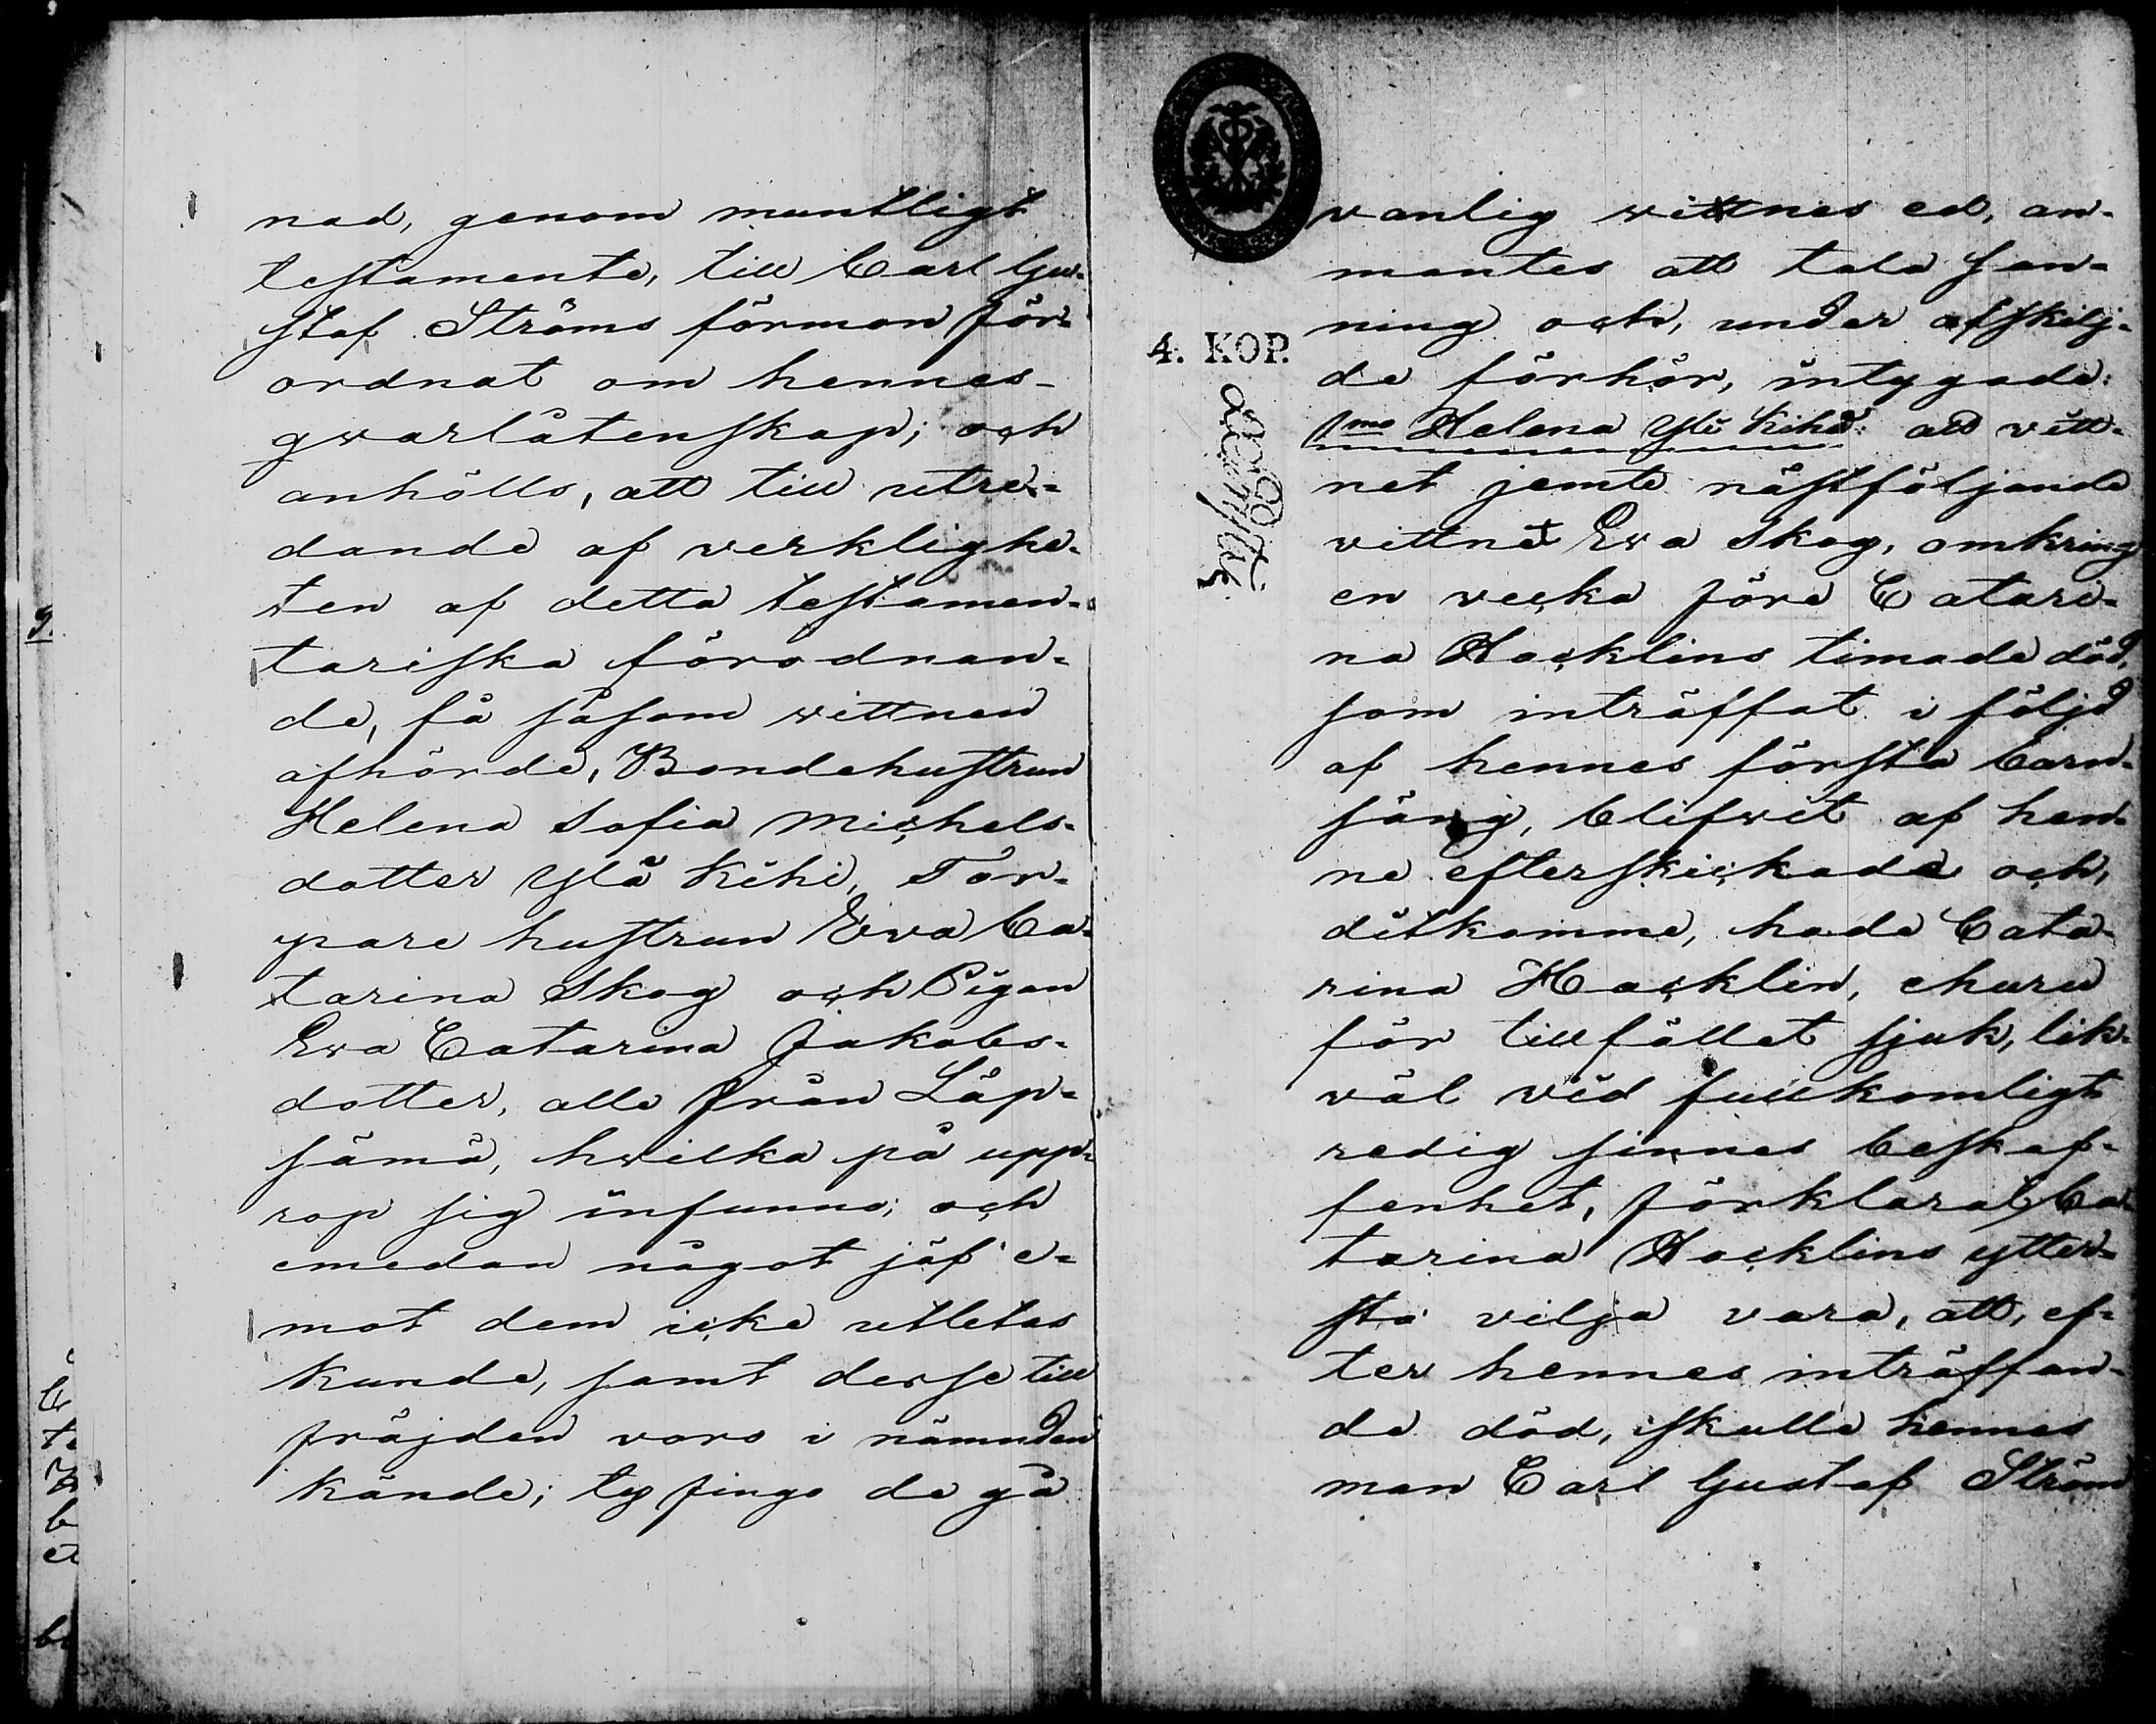 nad, genom muntligt
testamente, till Carl Gu-
staf Ströms förmon för-
ordnat om hennes
qvarlåtenskap; och
anhölls, att till utre-
dande af verklighe-
ten af detta testamen-
tariska förodnan-
de, få såsom wittnen
afhörde, Bondehustrun
Helena Sofia Michels-
dotter Ylä Kihi, Tor-
pare hustrun Ewa Ca-
tarina Skog och Pigan
Ewa Catarina Jakobs-
dotter, alla från Läp-
sämä, hwilka på upp-
rop sig infunno; och
emedan något jäf e-
mot dem icke utletas
kunde, samt desse till
fräjden voro i nämnden
kände; ty fingo de gå
vanlig wittnes ed, an-
mantes att tala san-
ning och, under afskilj-
de förhör, intygade:
4. KOP.
1mo Helena Ylä Kihi: att vitt-
net jemte nästföljande
vittnet Ewa Skog, omkring
en vecka före Catari-
na Hacklins timade död,
som inträffat i följd
af hennes första barn-
säng, blifwit af hen-
ne efterskickade och,
ditkomme, hade Cata-
rina Hacklin, ehuru
för tillfället sjuk, lik-
väl vid fullkomligt
redig sinnes beskaf-
fenhet, förklarat Ca-
tarina Hacklins ytter-
sta vilja vara, att, ef-
ter hennes inträffan-
de död, skulle hennes
man Carl Gustaf Ström